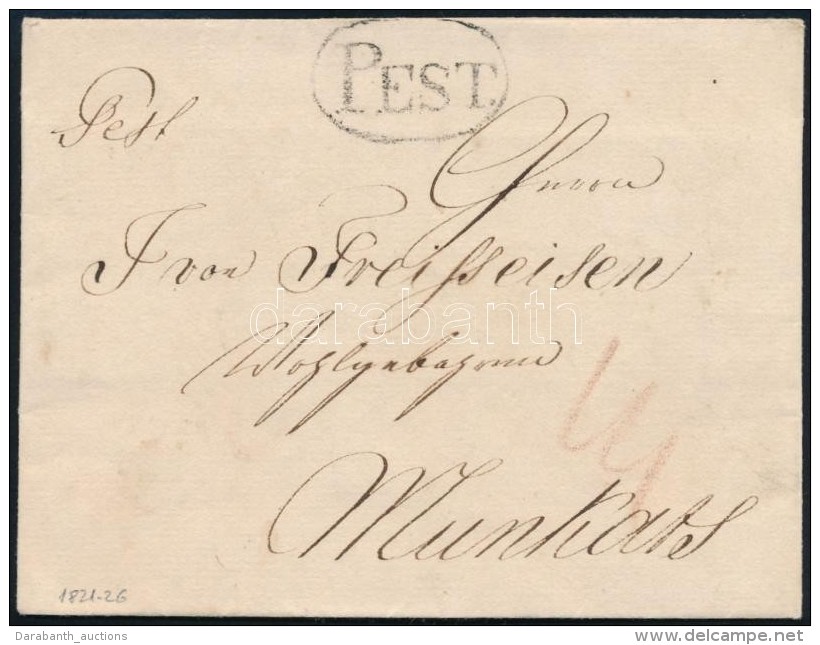 PEST.
Pest
Herrn
J von Freisseisen
Wohlgebohrnen
Munkats
darabanth
1821-26
Darabanth_auctions
www.delcampe.net